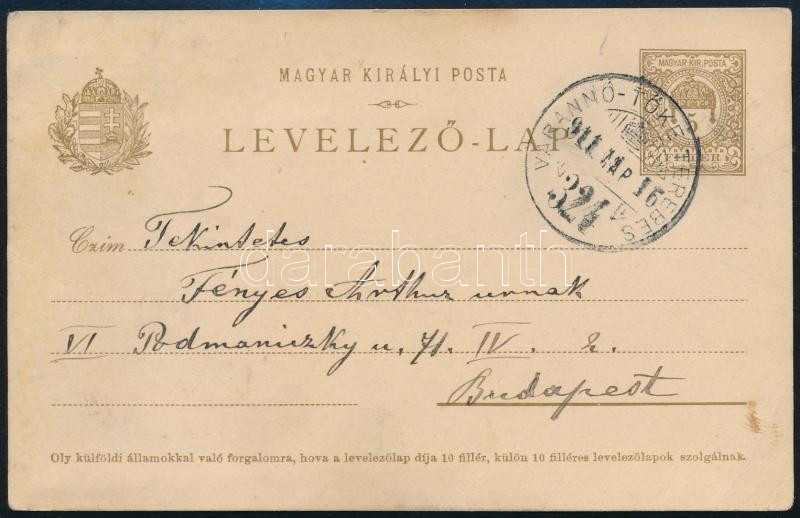 MAGYAR KIRÁLYI POSTA
MAGYAR KIR. POSTA
5
FILLÉR
LEVELEZŐ-LAP
VARANNÓ-TŐKETEREBES
911 MAR 16
324
Czim Tekintetes
Fényes Arthur urnak
VI Podmaniczky u. 71. IV. 2.
Budapest
Oly külföldi államokkal való forgalomra, hova a levelezőlap díja 10 fillér, külön 10 filléres levelezőlapok szolgálnak.
darabanth